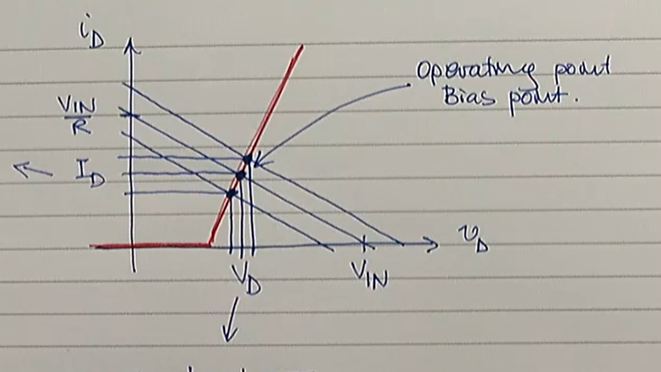 i_D
Operating point
Bias point.
V_IN
R
I_D
v_D
V_D
V_IN